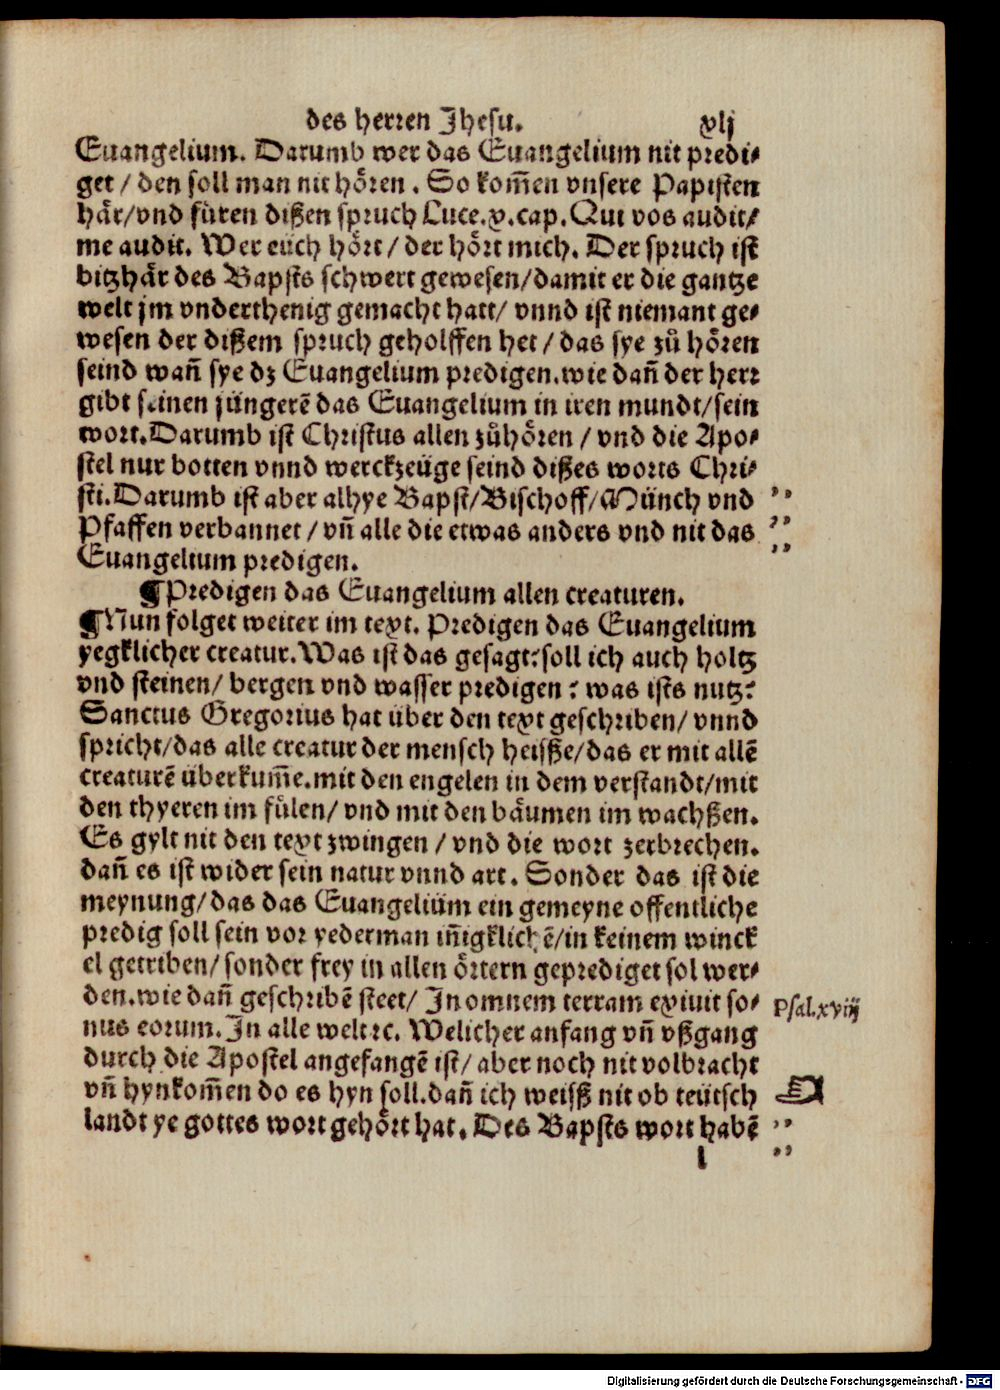 des herren Jhesu. xlj
Euangelium. Darumb wer das Euangelium nit predi⸗
get / den soll man nit hören . So kom̃en vnsere Papisten
här/vnd füren dißen spruch Luce.x.cap. Qui vos audit/
me audit. Wer eüch hört / der hört mich. Der spruch ist
bitzhär des Bapsts schwert gewesen/damit er die gantze
welt jm vnderthenig gemacht hatt/ vnnd ist niemant ge⸗
wesen der dißem spruch geholffen het / das sye zů hören
seind wañ sye dz Euangelium predigen.wie dañ der herr
gibt seinen jüngerẽ das Euangelium in iren mundt/sein
wort.Darumb ist Christus allen zůhören / vnd die Apo⸗
stel nur botten vnnd werckzeüge seind dißes worts Chri⸗
sti.Darumb ist aber alhye Bapst/Bischoff/Münch vnd
Pfaffen verbannet / vñ alle die etwas anders vnd nit das
Euangelium predigen.
¶Predigen das Euangelium allen creaturen.
¶Nun folget weiter im text. Predigen das Euangelium
yegklicher creatur.Was ist das gesagt?soll ich auch holtz
vnd steinen/ bergen vnd wasser predigen? was ists nutz?
Sanctus Gregorius hat über den text geschriben/ vnnd
spricht/das alle creatur der mensch heisße/das er mit allẽ
creaturẽ überkum̃e.mit den engelen in dem verstandt/mit
den thyeren im fůlen/ vnd mit den bäumen im wachßen.
Es gylt nit den text zwingen / vnd die wort zerbrechen.
dañ es ist wider sein natur vnnd art. Sonder das ist die
meynung/das das Euangelium ein gemeyne offentliche
predig soll sein vor yederman iñigklichẽ/in keinem winck
el getriben/ sonder frey in allen örtern geprediget sol wer⸗
den.wie dañ geschribẽ steet/ Jn omnem terram exiuit so⸗
Psal.xviij
nus eorum. Jn alle welt ꝛc. Welicher anfang vñ vßgang
durch die Apostel angefangẽ ist/ aber noch nit volbracht
vñ hynkom̃en do es hyn soll.dañ ich weisß nit ob teütsch
landt ye gottes wort gehört hat. Des Bapsts wort habẽ
l
Digitalisierung gefördert durch die Deutsche Forschungsgemeinschaft - DFG